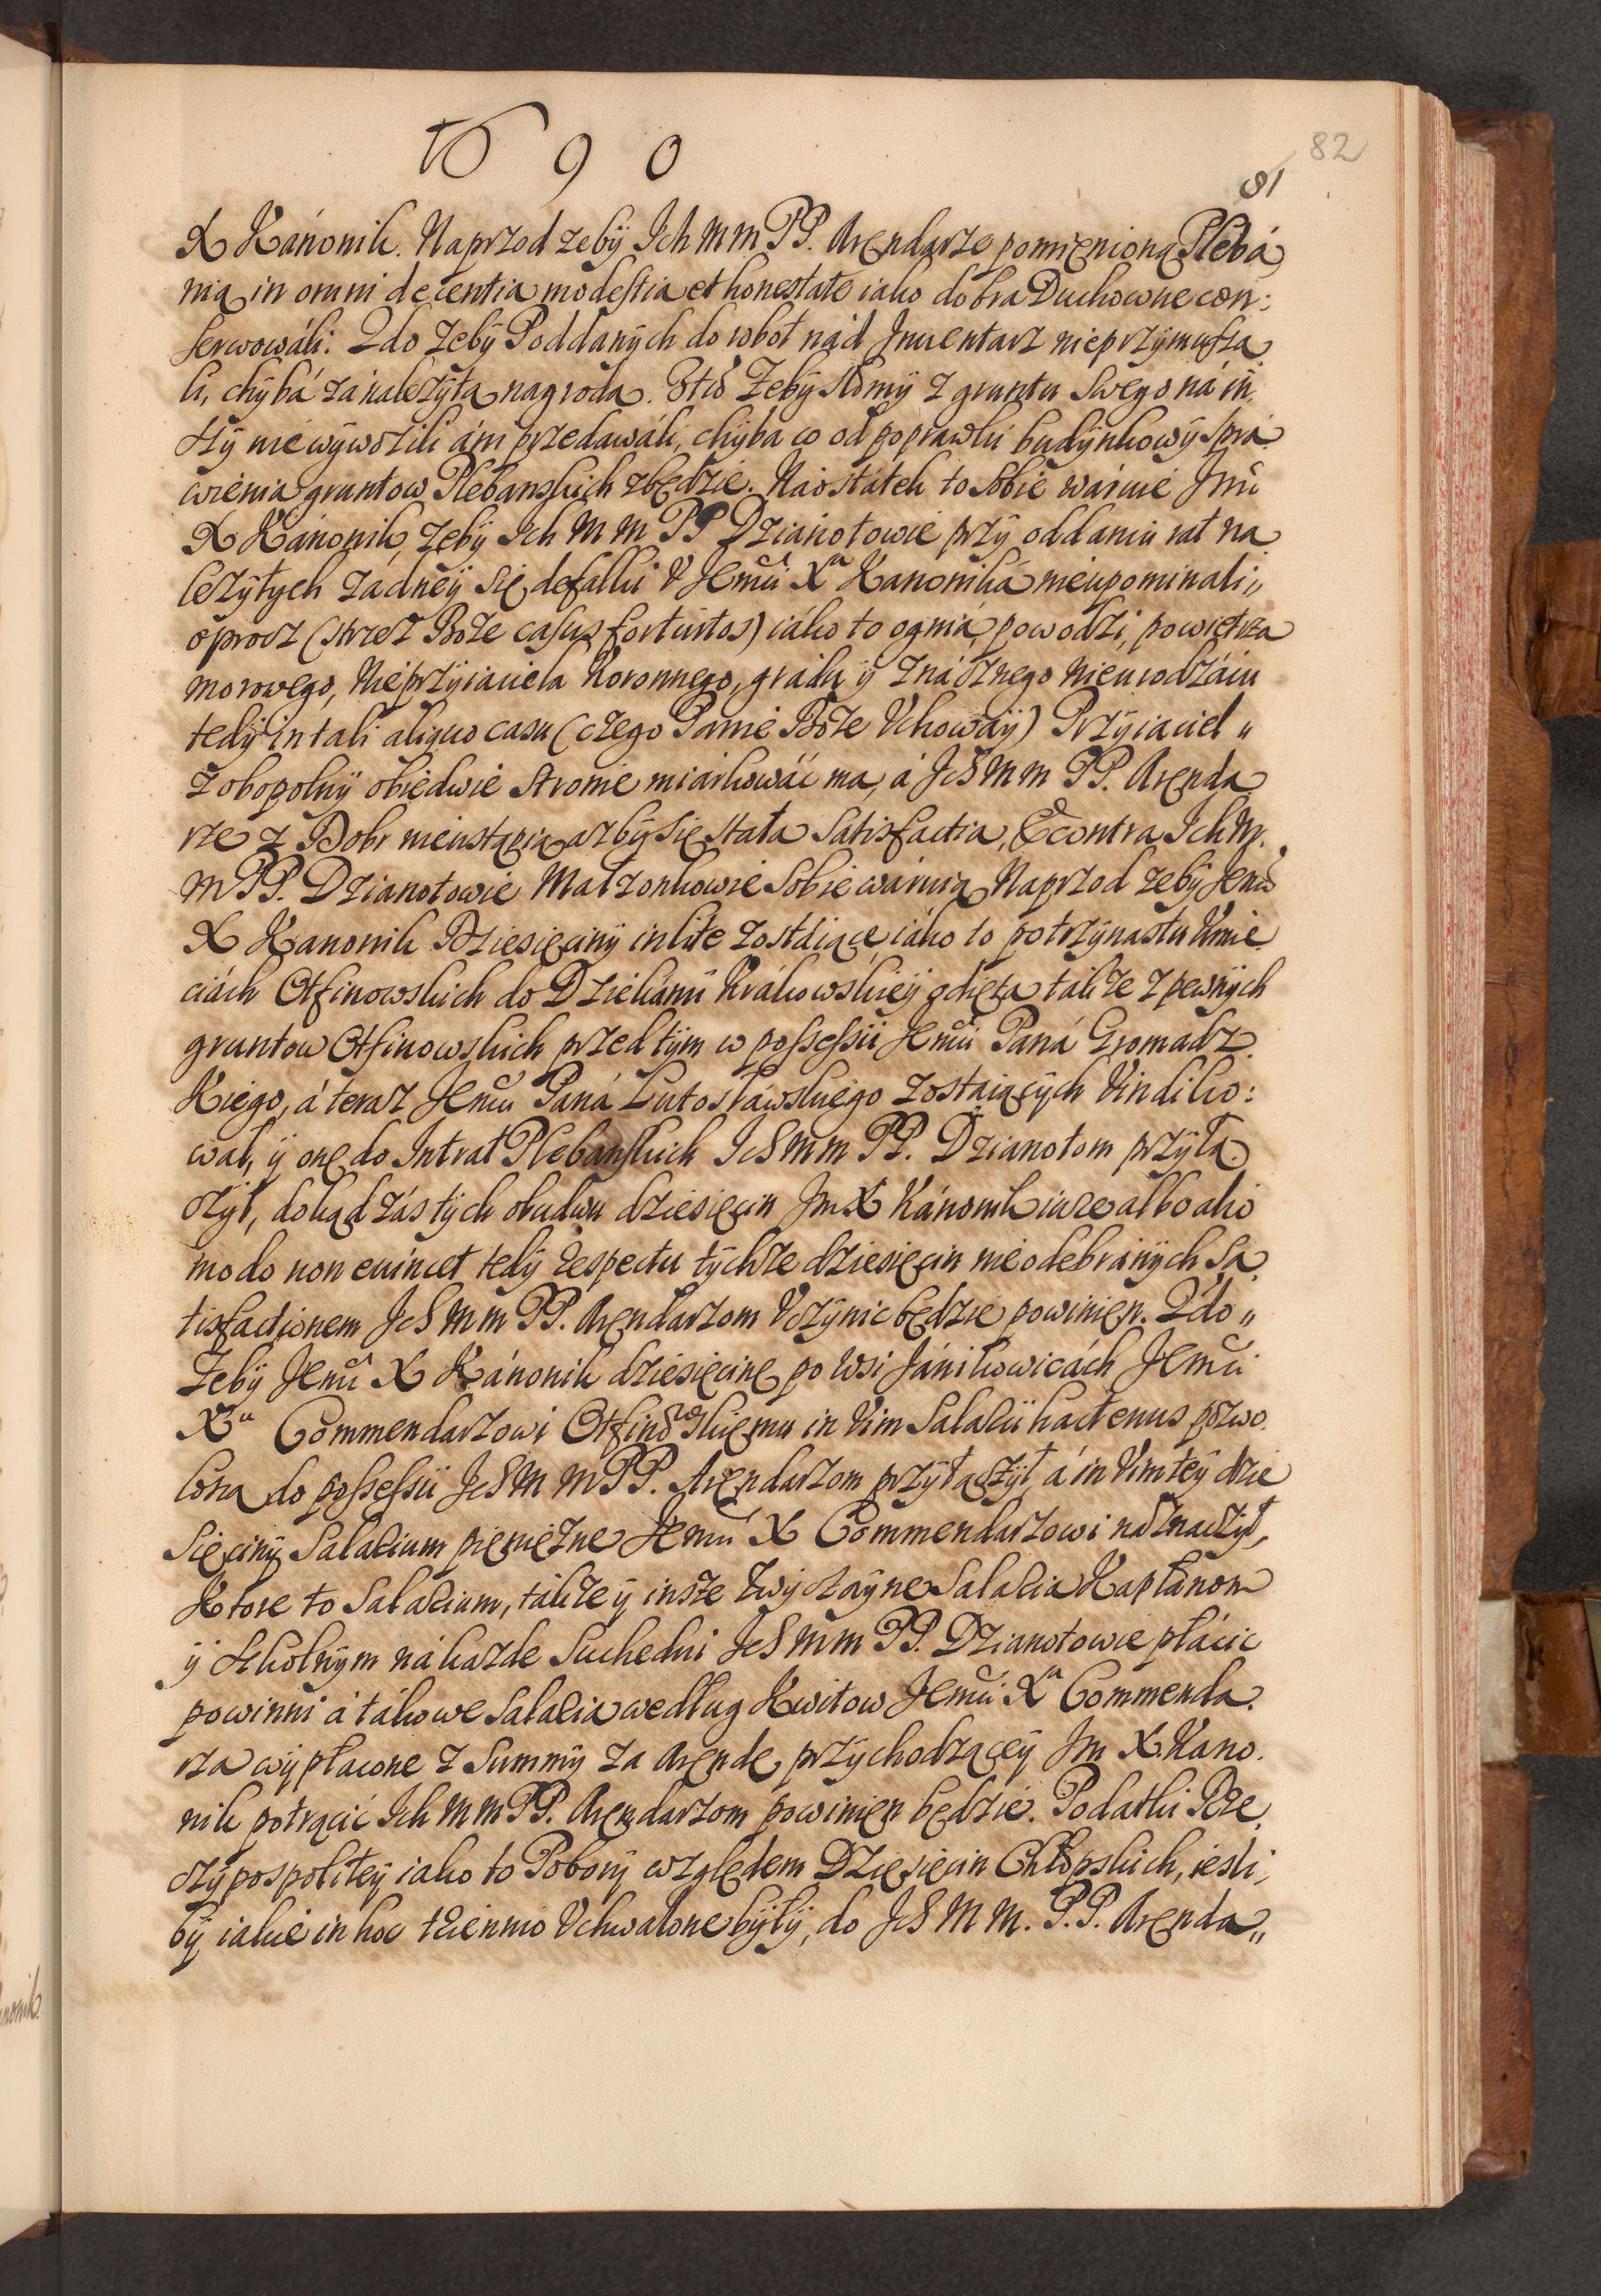 1690
82
81
X Kánonik. Naprzod zeby Ich MM PP. Arendarze pomienioną Plebá
nią in omni decentia modestia et honestate iako dobra Duchowne con:
serwowáli. 2do zeby Poddanych do robot nád Inwentarz nieprzymusza
li, chybá zá nalezytą nagrodą. 3tio Zeby Słomy z gruntu Swego ná in
szy niewywozili áni przedawáli, chyba co od poprawki budynkow y Sprá
wienia gruntow Plebanskich zbędzie. Náostátek to Sobie wáruie Jmć
X Kánonik, zeby Ich MM PP Dzianotowie przy oddaniu rat na
lezytych zádney się defalki v Jemći Xa Kanoniká nieupominali „
oprocz (strzez Boze casus fortuitos) iáko to ogniá, powodzi, powietrza
morowego, Nieprzyiaciela Koronnego, grádu y znácznego nieurodzáiu
tedy in tali aliquo casu (czego Panie Boze Vchoway) Przyiaciel „
z obopolny obiedwie stronie miárkowáć ma, á IchMM PP. Arenda
rze z Dobr nieustąpią azby się stała Satisfactia, Econtra IchM.
MPP. Dzianotowie Małzonkowie Sobie waruią Naprzod zeby Jemć
X Kanonik Dziesięciny in lite zostáiące iáko to po trzynastu Kmie
ciách Otfinowskich do Dziekánii Krákowskiey odięta tákze z pewnych
gruntow Otfinowskich przedtym w possessii Jemći Paná Gromadz
Kiego, á teraz Jemći Paná Lutosłáwskiego zostaiących Vindiko:
wał, y onę do Intrat Plebanskich IchMM PP. Dzianotom przyłą
czył, dokąd zás tych obudwu dziesięcin Jm X Kánonik iure albo alio
modo non euincet tedy respectu tychze dziesięcin nieodebránych Sa
tisfactionem IchMM PP. Arendarzom Vczynic będzie powinien. 2do „
Zeby Jemć X Kánonik dziesięcinę po Wsi Jánikowicách Jemći
Xu Commendarzowi Otfinowskiemu in Vim Salarii hactenus pozwo
loną do possessii IchM MPP. Arendarzom przyłączył, á in Vim tey dzie
sięciny Salarium pieniężne Jemći X Commendarzowi náznaczył,
Ktore to Salarium, tákze y insze Zwyczayne Salaria Kapłanom
y szkolnym ná kazde Suchedni IchMM PP. Dzianotowie płácic
powinni á tákowe Salaria według Kwitow Jemći Xa Commenda
rza wypłacone z Summy za Arendę przychodzącey Jm X. Kano
nik potrącić Ich MM PP. Arendarzom powinien będzie. Podatki Rze
czypospolitey iako to Pobory względem Dziesięcin Chłopskich, iesli
by iakie in hoc triennio Vchwalone były, do IchM M. P.P. Arenda „